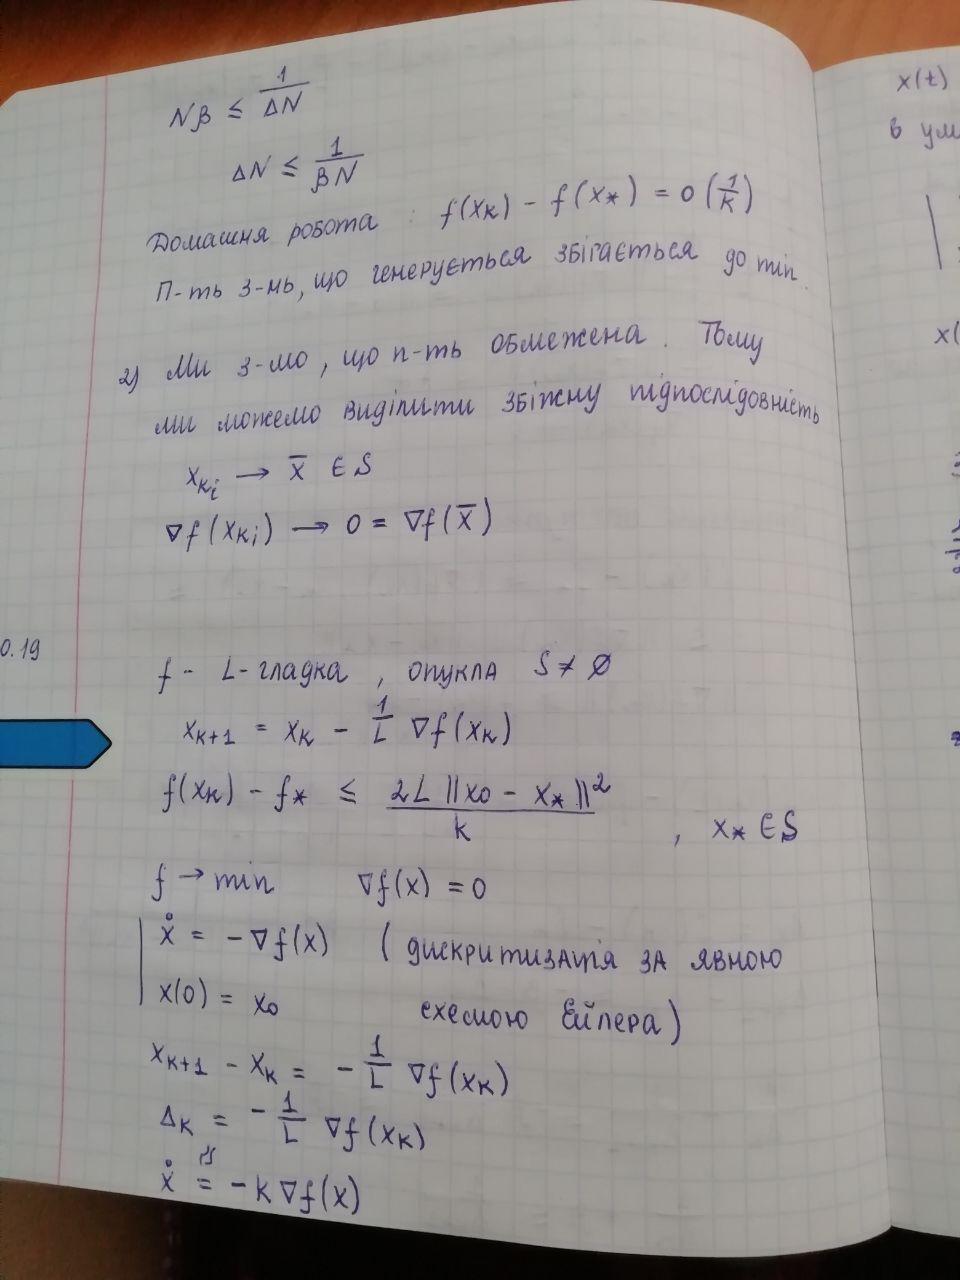 Nβ ≤ 1/ΔN
ΔN ≤ 1/βN
Домашня робота : f(xк) - f(x*) = o(1/к)
П-ть з-нь, що генерується збігається до min.
2) Ми з-мо, що п-ть обмежена. Тому
ми можемо виділити збіжну підпослідовність
xкi → x̄ ∈ S
∇f(xкi) → 0 = ∇f(x̄)
0.19
f - L-гладка, опукла S ≠ ∅
xк+1 = xк - 1/L ∇f(xк)
f(xк) - f* ≤ 2L ||x0 - x*||² / k , x* ∈ S
f → min ∇f(x) = 0
ẋ = -∇f(x) (дискритизація за явною
x(0) = x0 схемою Ейлера)
xк+1 - xк = - 1/L ∇f(xк)
Δк = - 1/L ∇f(xк)
ẋ = -к∇f(x)
x(t)
в ум
x(